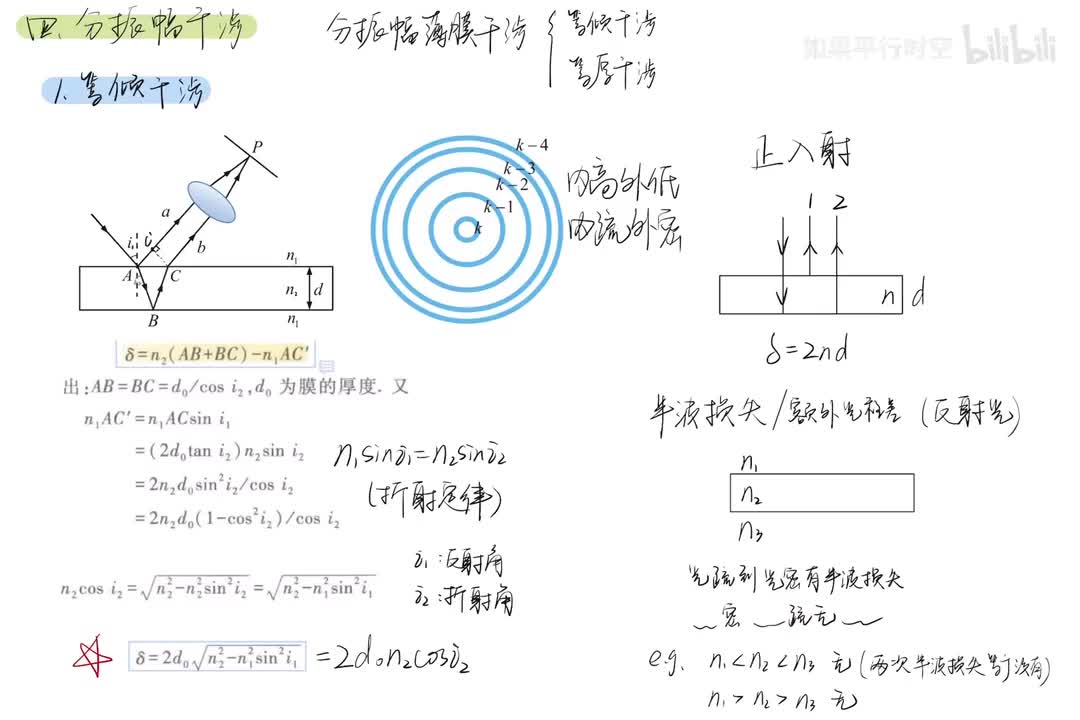 四、分振幅干涉
分振幅薄膜干涉 { 等倾干涉
等厚干涉
如果平行时空 bilibili
1. 等倾干涉
P
a
b
i₁
i₁
A
C
B
n₁
n₂
d
n₁
k-4
k-3
k-2
k-1
k
内高外低
内疏外密
正入射
1 2
n d
δ=2nd
δ=n₂(AB+BC)-n₁AC′
出:AB=BC=d₀/cos i₂,d₀ 为膜的厚度. 又
n₁AC′=n₁ACsin i₁
=(2d₀tan i₂)n₂sin i₂
=2n₂d₀sin²i₂/cos i₂
=2n₂d₀(1-cos²i₂)/cos i₂
n₁sini₁=n₂sini₂
(折射定律)
i₁:反射角
i₂:折射角
n₂cos i₂=√(n₂²-n₂²sin²i₂)=√(n₂²-n₁²sin²i₁)
δ=2d₀√(n₂²-n₁²sin²i₁) =2d₀n₂cosi₂
半波损失/额外光程差 (反射光)
n₁
n₂
n₃
光疏到光密有半波损失
密 疏无
e.g. n₁<n₂<n₃ 无(两次半波损失等于没有)
n₁>n₂>n₃ 无